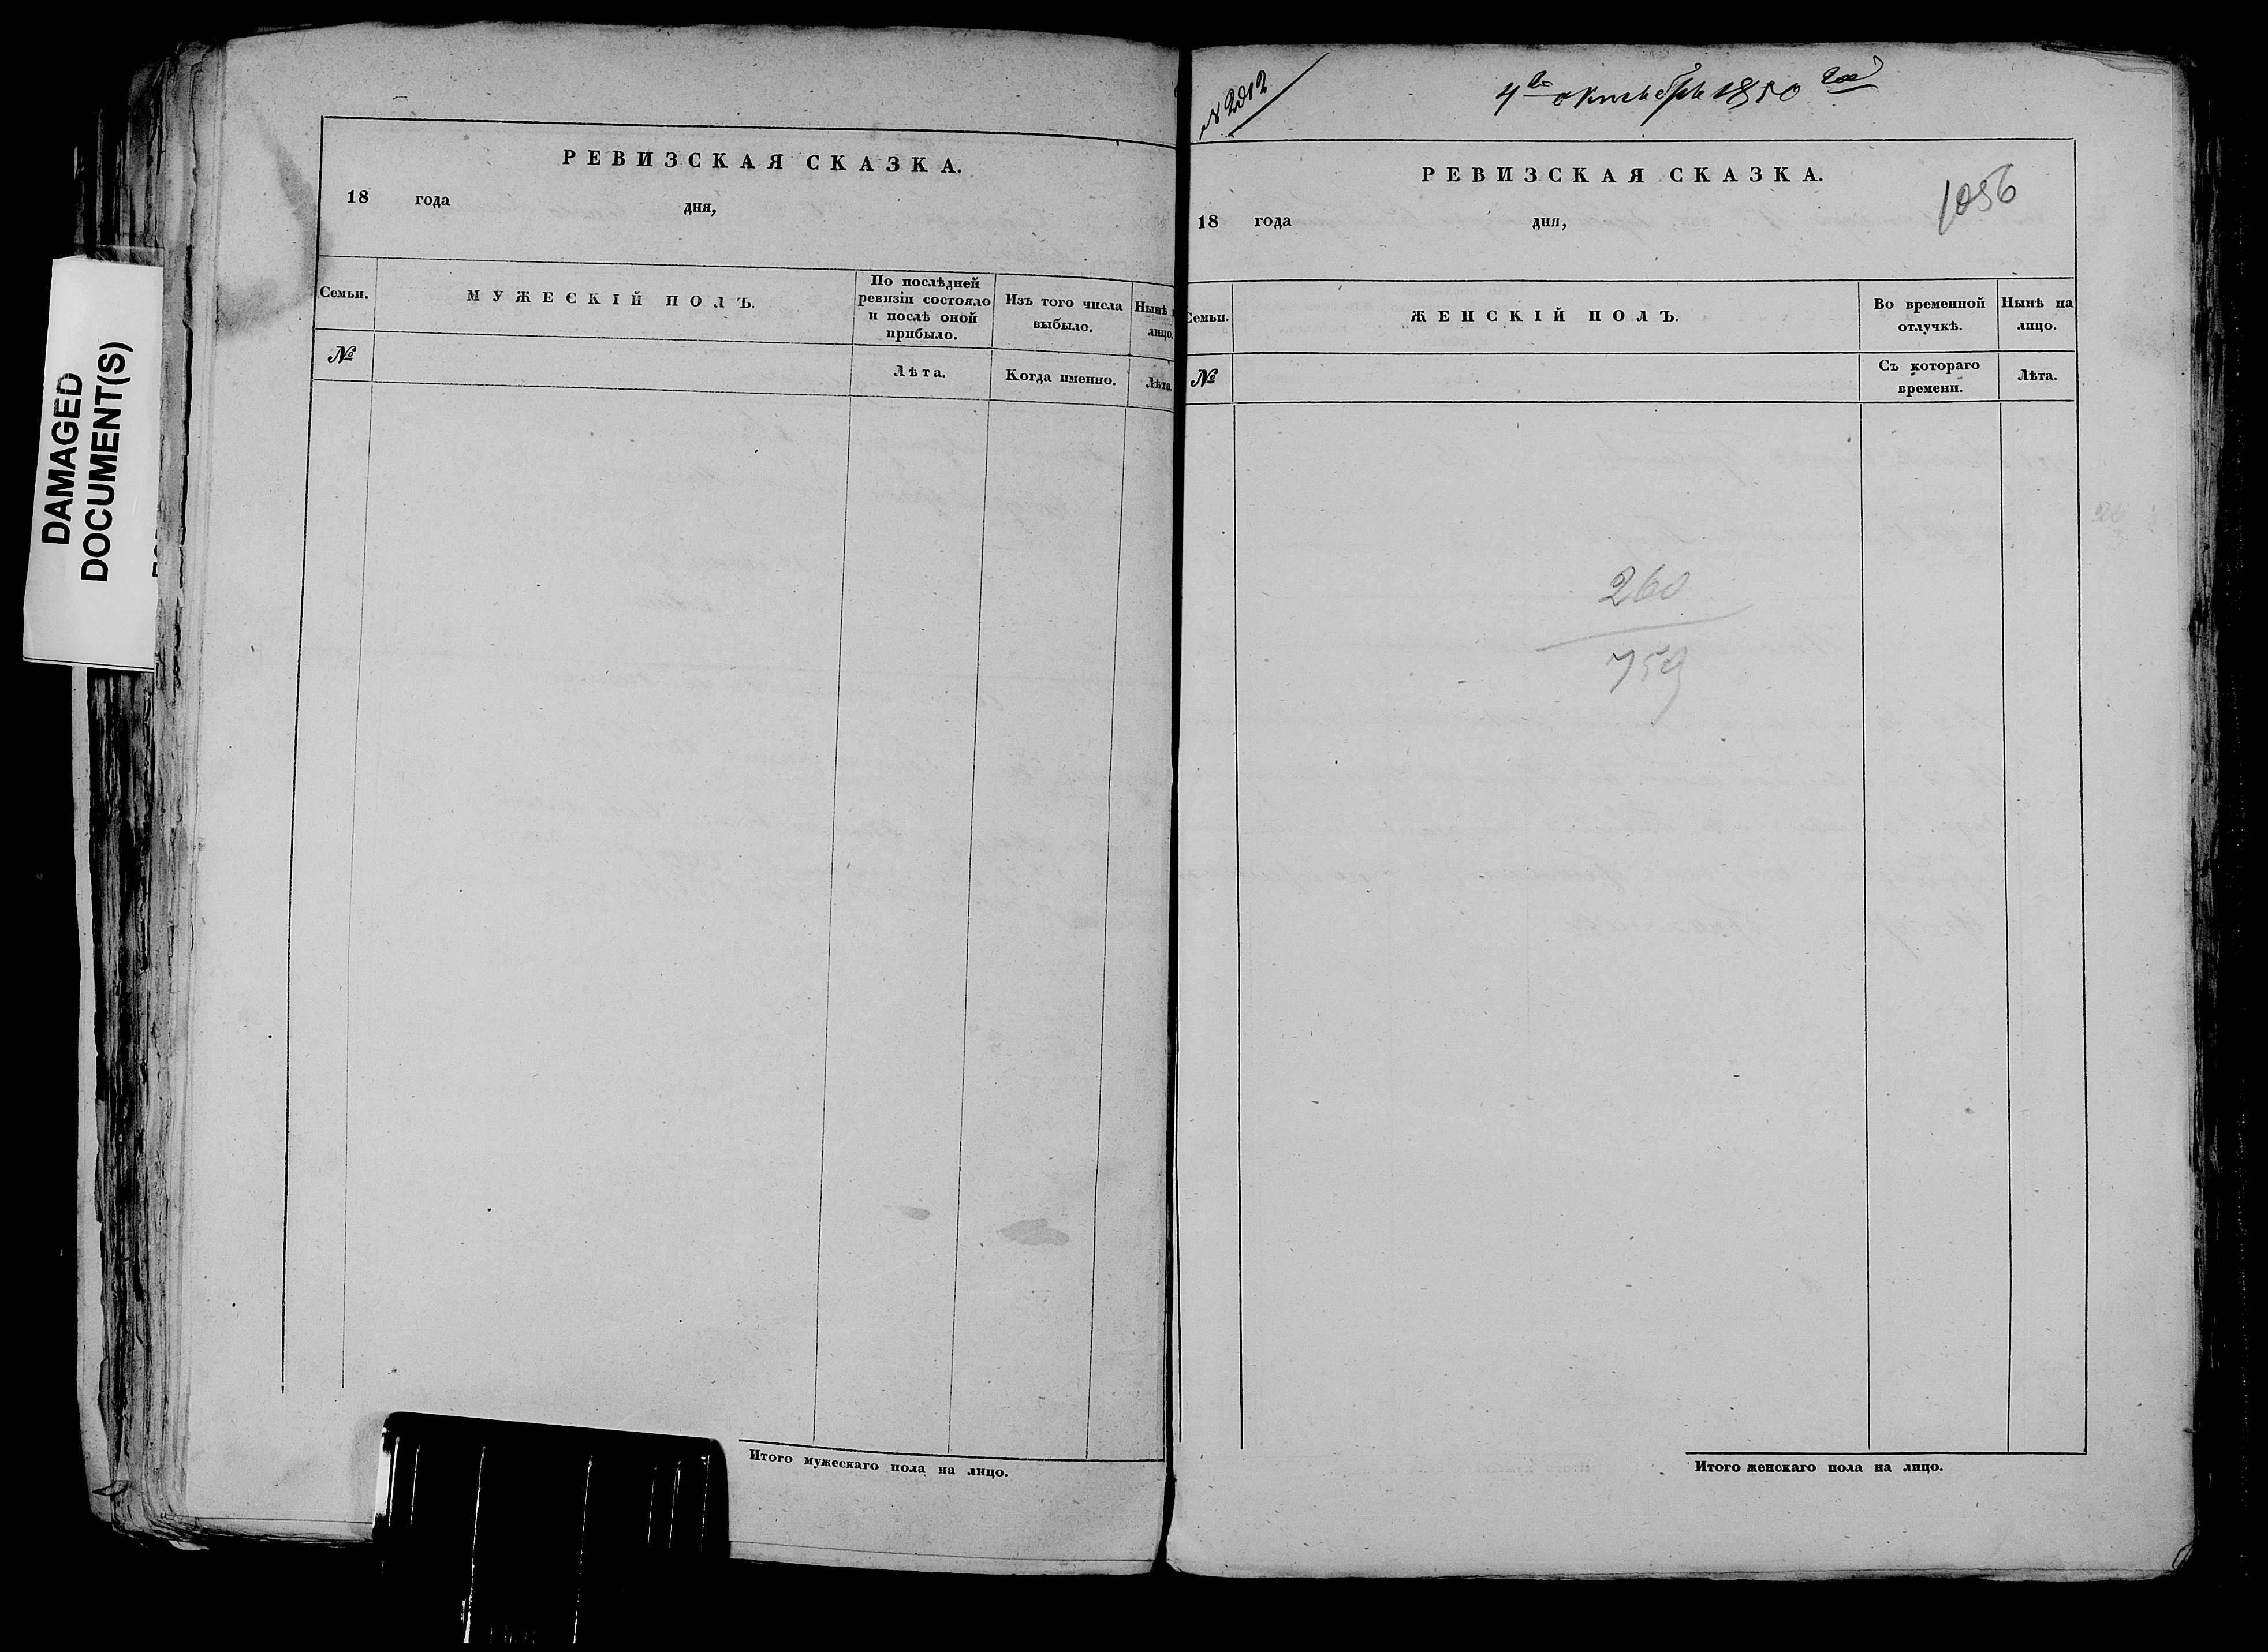 DAMAGED
DOCUMENT(S)
РЕВИЗСКАЯ СКАЗКА.
18 года дня,
Семьи.
МУЖЕСКІЙ ПОЛЪ.
По послѣдней
ревизіи состояло
и послѣ оной
прибыло.
Изъ того числа
выбыло.
Нынѣ
лицо.
№
Лѣта.
Когда именно.
Лѣта.
Итого мужескаго пола на лицо.
№ 2012
4го октября 1850 года
РЕВИЗСКАЯ СКАЗКА.
1056
18 года дня,
Семьи.
ЖЕНСКІЙ ПОЛЪ.
Во временной
отлучкѣ.
Нынѣ на
лицо.
№
Съ котораго
времени.
Лѣта.
260
759
Итого женскаго пола на лицо.